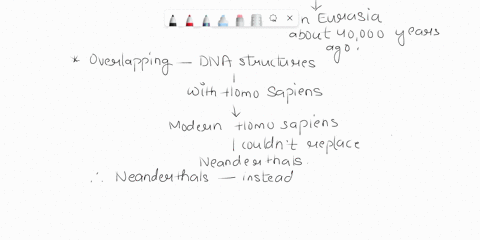 n Eurasia
about 40,000 years
ago.
* Overlapping — DNA structures
with Homo Sapiens
Modern Homo sapiens
couldn't replace
Neanderthals.
∴ Neanderthals — instead